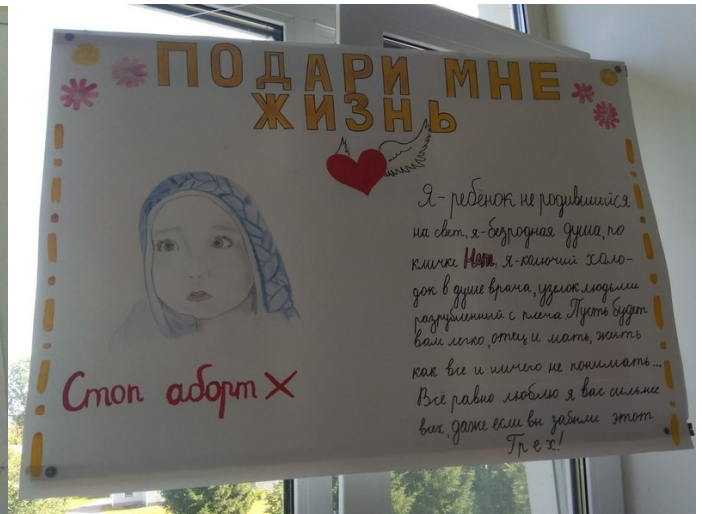 ПОДАРИ МНЕ
ЖИЗНЬ
Я - ребёнок не родившийся
на свет, я - безродная душа, по
кличке Нет, я - колючий холо-
док в душе врача, узелок людьми
разрубленный с плеча. Пусть будет
вам легко, отец и мать, жить
как все и ничего не понимать...
Всё равно люблю я вас сильнее
всех, даже если вы забыли этот
Грех!
Стоп аборт X